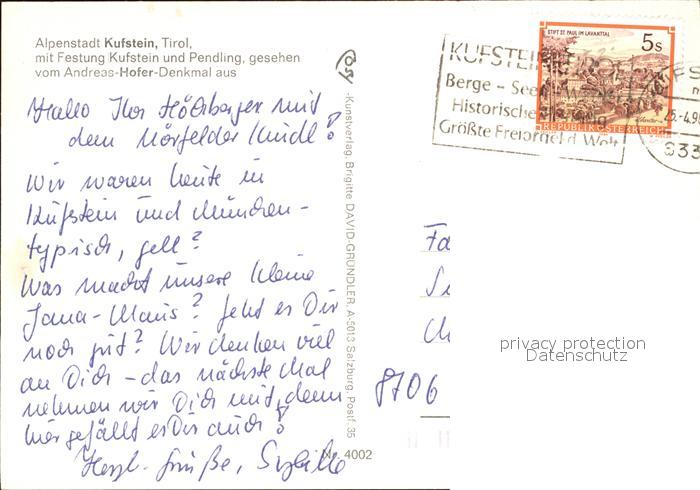 Alpenstadt Kufstein, Tirol,
mit Festung Kufstein und Pendling, gesehen
vom Andreas-Hofer-Denkmal aus
Hallo Ihr Höchberger mit
dem Mörfelder Kindl!
Wir waren heute in
Kufstein und München -
typisch, gell?
Was macht unsere kleine
Jana-Maus? Geht es Dir
noch gut? Wir denken viel
an Dich - das nächste Mal
nehmen wir Dich mit, denn
hier gefällt es Dir auch!
Herzl. Grüße, Sybille
-Kunstverlag, Brigitte DAVID-GRÜNDLER, A-5013 Salzburg, Postf. 35
Nr. 4002
STIFT ST. PAUL IM LAVANTTAL
5s
REPUBLIK ÖSTERREICH
KUFSTEIN
Berge - Seen
Historische
Größte Freiorgel d. Welt
25.-4.9
633
Fa
8706
privacy protection
Datenschutz